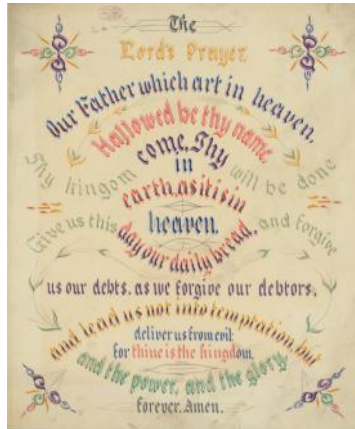 The
Lord's Prayer.
Our Father which art in heaven,
Hallowed be thy name.
Thy kingdom come. Thy will be done
in
earth, as it is in
heaven.
Give us this day our daily bread, and forgive
us our debts, as we forgive our debtors;
and lead us not into temptation, but
deliver us from evil:
for thine is the kingdom,
and the power, and the glory
forever. Amen.